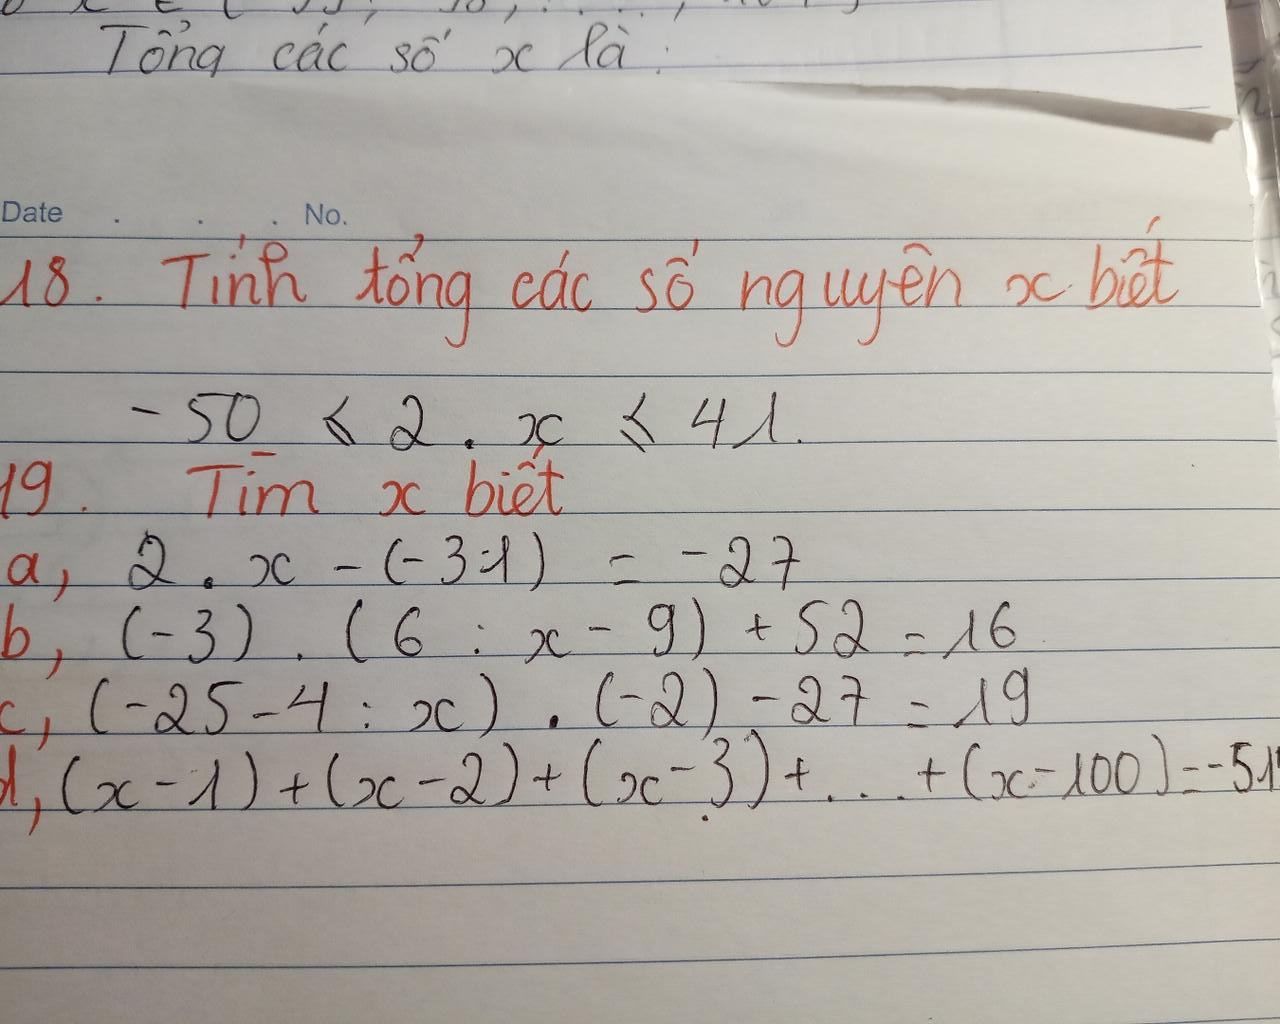 Tổng các số x là:
Date . . . No.
18. Tính tổng các số nguyên x biết
-50 ≤ 2 . x ≤ 41.
19. Tìm x biết
a, 2 . x - (-31) = -27
b, (-3) . (6 : x - 9) + 52 = 16
c, (-25 - 4 : x) . (-2) - 27 = 19
d, (x - 1) + (x - 2) + (x - 3) + ... + (x - 100) =